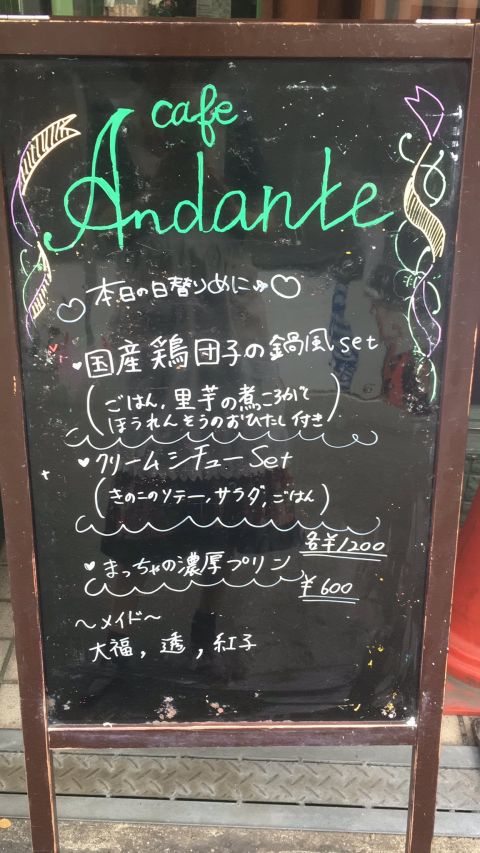 cafe
Andante
♡本日の日替りめにゅ♡
♥国産鶏団子の鍋風set
(ごはん、里芋の煮ころがし
ほうれんそうのおひたし付き)
♥クリームシチューSet
(きのこのソテー、サラダ、ごはん)
各¥1200
♥まっちゃの濃厚プリン
¥600
〜メイド〜
大福、透、紅子